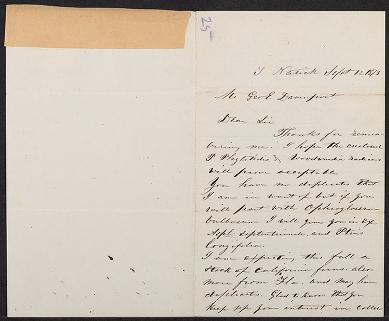 25-
S Natick Sept 12 1873
Mr Geo E Davenport
Dear Sir
Thanks for remem
bering me. I hope the enclosed
P &
will prove acceptable
You have no duplicates that
I am in want of but if you
will part with Ophioglossum
bulbosum I will give you in Ex
Aspl septentrionale and Pteris
longifolia
I am expecting this fall a
stock of California ferns. also
more from Fla. and may have
duplicates. Glad to know that you
keep up your interest in collec